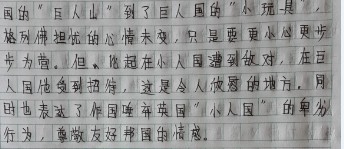 国的"巨人山"到了巨人国的"小玩具",
格列佛担忧的心情未变,只是要更小心更步
步为营。但,比起在小人国遭到敌对,在巨
人国他受到招待,这是令人欣慰的地方。同
时也表达了作国唾弃英国"小人国"的卑劣
行为,尊敬友好邦国的情感。